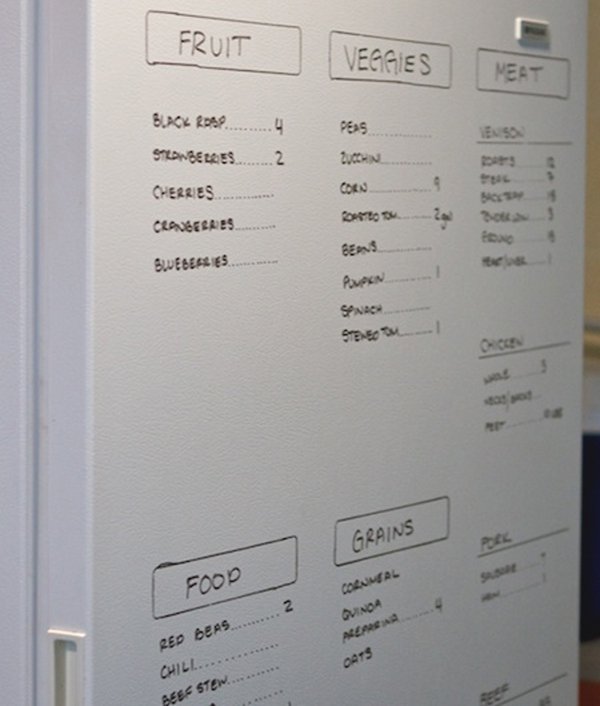 FRUIT
BLACK RASP......... 4
STRAWBERRIES........ 2
CHERRIES............
CRANBERRIES..........
BLUEBERRIES..........
VEGGIES
PEAS.............
ZUCCHINI...........
CORN............ 9
ROASTED TOM....... 2 gal
BEANS...........
PUMPKIN.......... 1
SPINACH..........
STEWED TOM....... 1
MEAT
VENISON
ROASTS ...... 12
STEAK ...... 7
BACKSTRAP ...
TENDERLOIN ... 3
GROUND ......
HEART/LIVER ... 1
CHICKEN
WHOLE ...... 3
NECKS/BACKS .....
FEET ..........
PORK
SAUSAGE .....
HAM ....... 1
BEEF
FOOD
RED BEAS........... 2
CHILI............
BEEF STEW.........
GRAINS
CORNMEAL
QUINOA
PREPARINA ....... 4
OATS